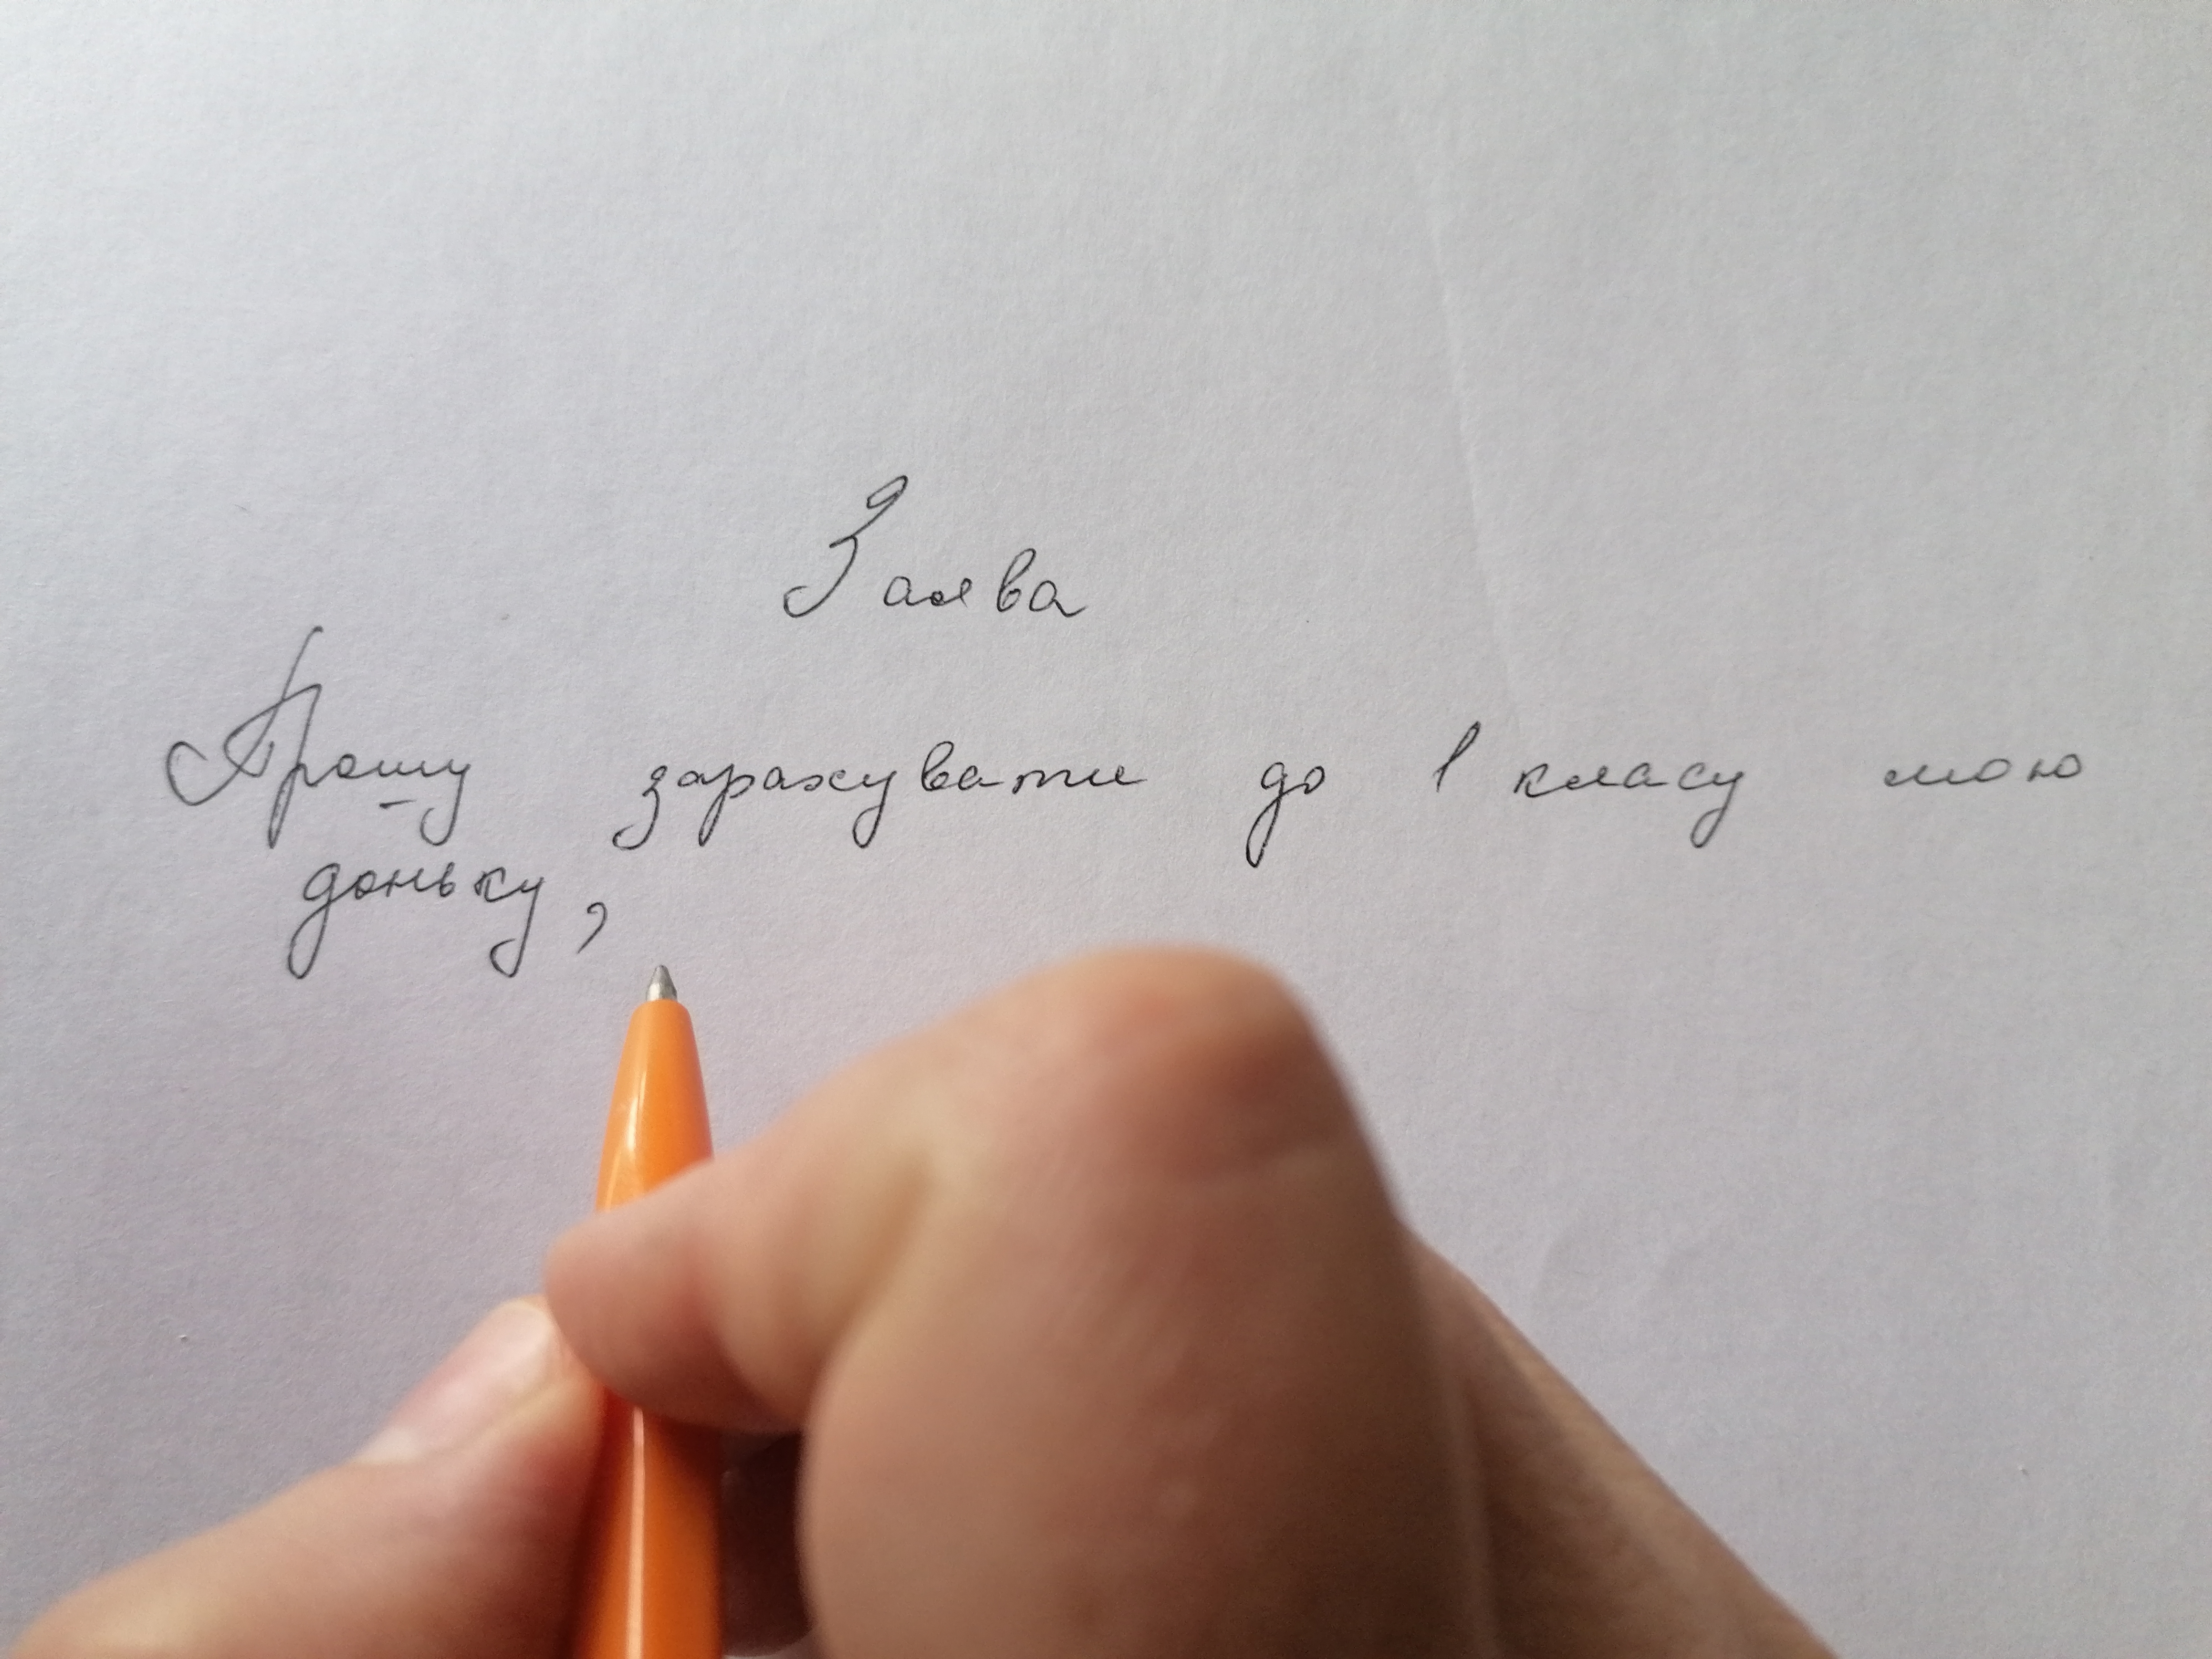 Заява
Прошу зарахувати до 1 класу мою
доньку,